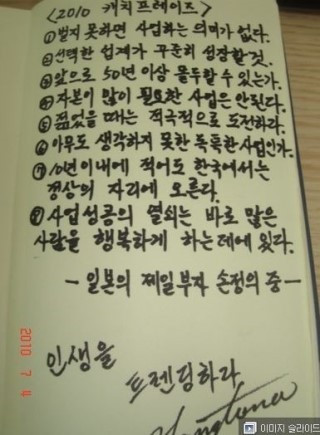 <2010 캐치프레이즈>
①벌지 못하면 사업하는 의미가 없다.
②선택한 업계가 꾸준히 성장할것.
③앞으로 50년 이상 몰두할 수 있는가.
④자본이 많이 필요한 사업은 안된다.
⑤젊었을 때는 적극적으로 도전하라.
⑥아무도 생각하지 못한 독특한 사업인가.
⑦10년이내에 적어도 한국에서는
정상의 자리에 오른다.
⑧사업성공의 열쇠는 바로 많은
사람을 행복하게 하는데에 있다.
-일본의 제일부자 손정의 중-
인생을
트렌딩하라
2010 7 4
이미지 슬라이드